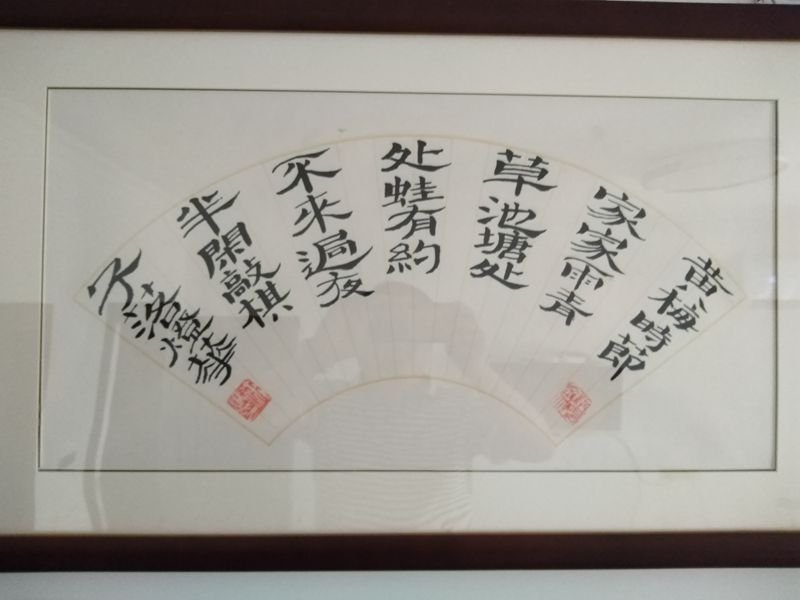 黄梅時節
家家雨青
草池塘处
处蛙有約
不來過夜
半閑敲棋
子落燈華